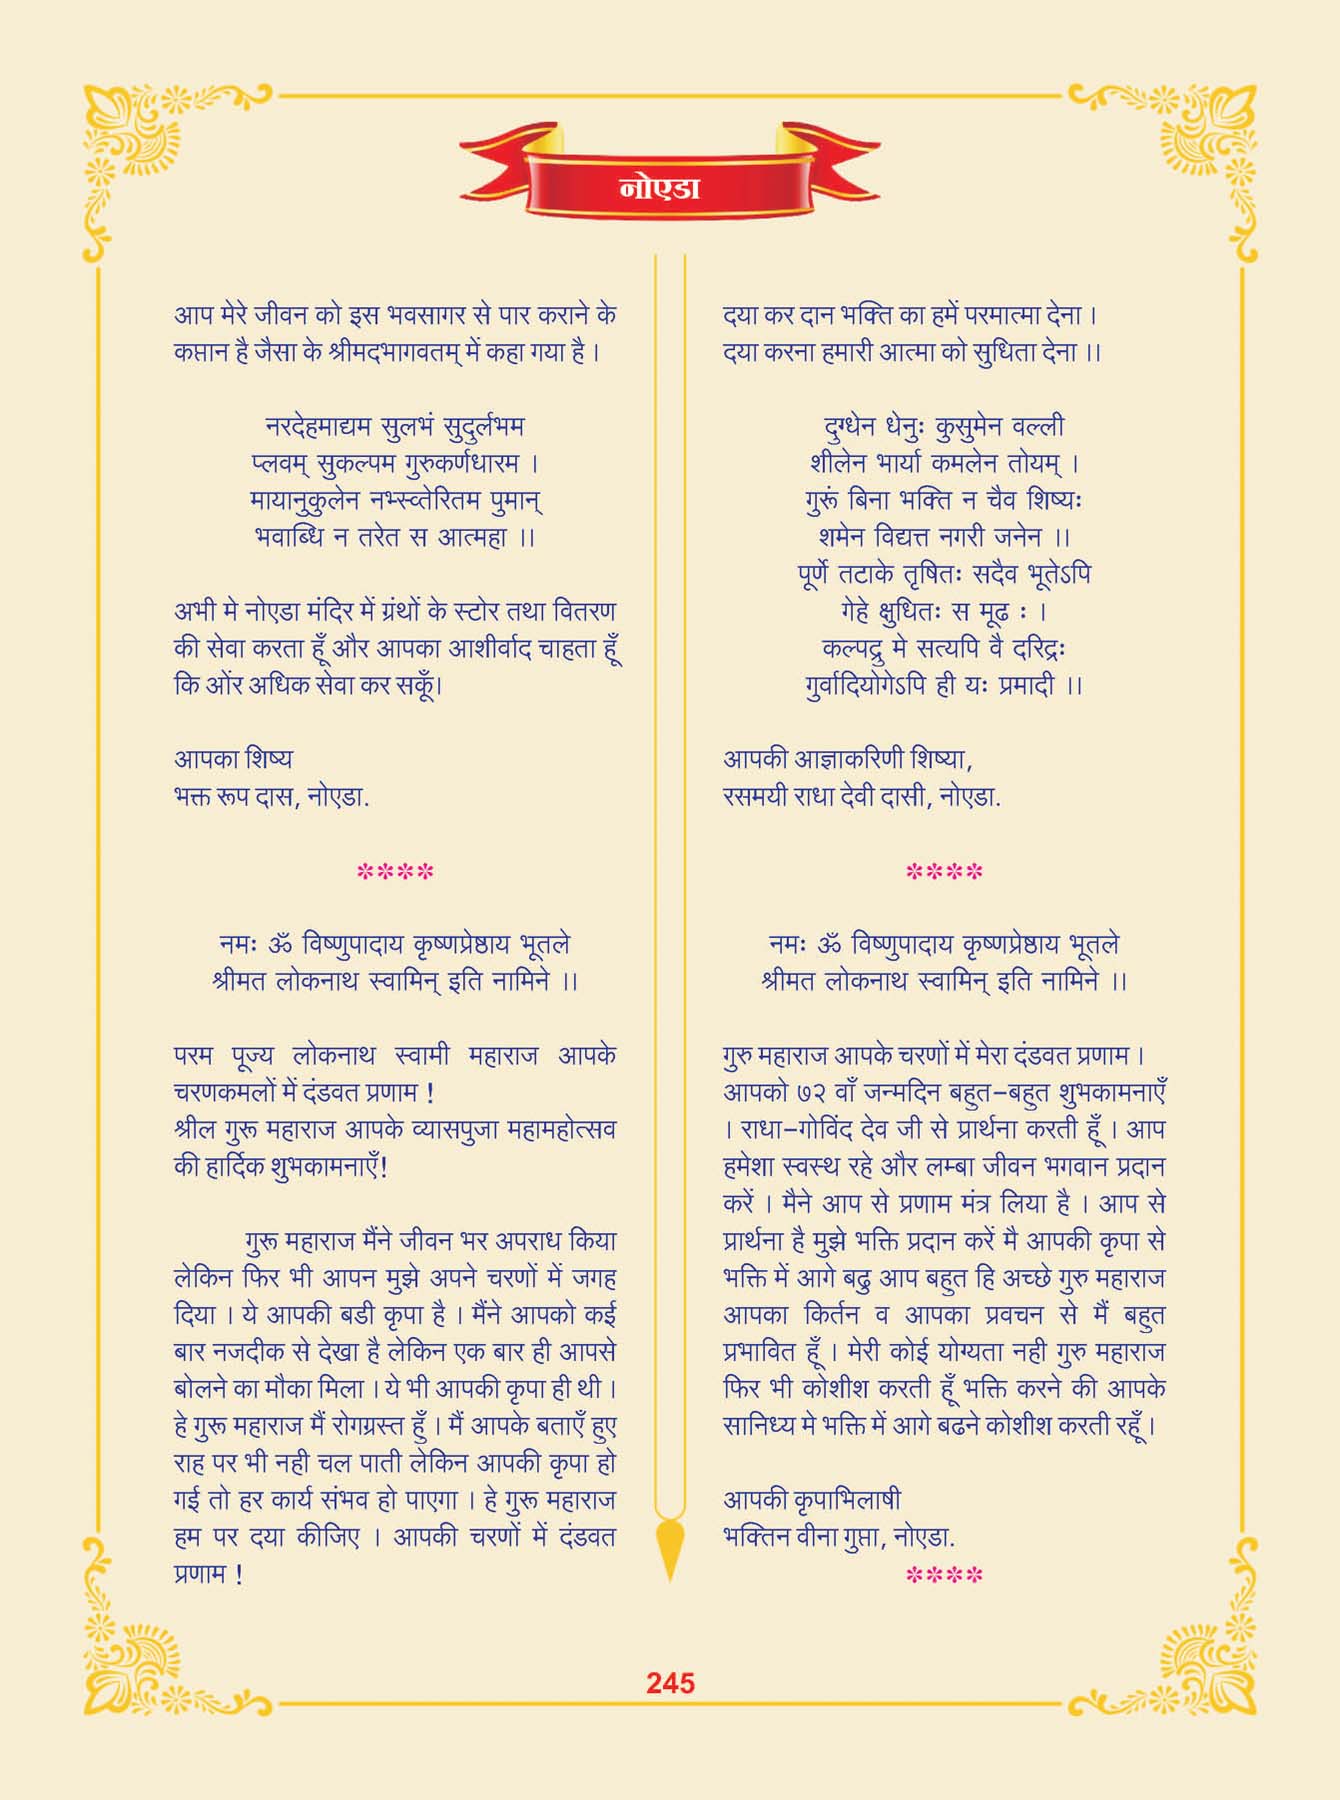 नोएडा
आप मेरे जीवन को इस भवसागर से पार कराने के
कप्तान है जैसा के श्रीमदभागवतम् में कहा गया है ।
नरदेहमाद्यम सुलभं सुदुर्लभम
प्लवम् सुकल्पम गुरुकर्णधारम ।
मायानुकुलेन नभ्स्व्तेरितम पुमान्
भवाब्धि न तरेत स आत्महा ।।
अभी मे नोएडा मंदिर में ग्रंथों के स्टोर तथा वितरण
की सेवा करता हूँ और आपका आशीर्वाद चाहता हूँ
कि ओंर अधिक सेवा कर सकूँ।
आपका शिष्य
भक्त रूप दास, नोएडा.
****
नमः ॐ विष्णुपादाय कृष्णप्रेष्ठाय भूतले
श्रीमत लोकनाथ स्वामिन् इति नामिने ।।
परम पूज्य लोकनाथ स्वामी महाराज आपके
चरणकमलों में दंडवत प्रणाम !
श्रील गुरू महाराज आपके व्यासपुजा महामहोत्सव
की हार्दिक शुभकामनाएँ!
गुरू महाराज मैंने जीवन भर अपराध किया
लेकिन फिर भी आपन मुझे अपने चरणों में जगह
दिया । ये आपकी बडी कृपा है । मैंने आपको कई
बार नजदीक से देखा है लेकिन एक बार ही आपसे
बोलने का मौका मिला । ये भी आपकी कृपा ही थी ।
हे गुरू महाराज मैं रोगग्रस्त हुँ । मैं आपके बताएँ हुए
राह पर भी नही चल पाती लेकिन आपकी कृपा हो
गई तो हर कार्य संभव हो पाएगा । हे गुरू महाराज
हम पर दया कीजिए । आपकी चरणों में दंडवत
प्रणाम !
दया कर दान भक्ति का हमें परमात्मा देना ।
दया करना हमारी आत्मा को सुधिता देना ।।
दुग्धेन धेनुः कुसुमेन वल्ली
शीलेन भार्या कमलेन तोयम् ।
गुरूं बिना भक्ति न चैव शिष्यः
शमेन विद्यत्त नगरी जनेन ।।
पूर्णे तटाके तृषितः सदैव भूतेऽपि
गेहे क्षुधितः स मूढ ः ।
कल्पद्रु मे सत्यपि वै दरिद्रः
गुर्वादियोगेऽपि ही यः प्रमादी ।।
आपकी आज्ञाकरिणी शिष्या,
रसमयी राधा देवी दासी, नोएडा.
****
नमः ॐ विष्णुपादाय कृष्णप्रेष्ठाय भूतले
श्रीमत लोकनाथ स्वामिन् इति नामिने ।।
गुरु महाराज आपके चरणों में मेरा दंडवत प्रणाम ।
आपको ७२ वाँ जन्मदिन बहुत–बहुत शुभकामनाएँ
। राधा–गोविंद देव जी से प्रार्थना करती हूँ । आप
हमेशा स्वस्थ रहे और लम्बा जीवन भगवान प्रदान
करें । मैने आप से प्रणाम मंत्र लिया है । आप से
प्रार्थना है मुझे भक्ति प्रदान करें मै आपकी कृपा से
भक्ति में आगे बढु आप बहुत हि अच्छे गुरु महाराज
आपका किर्तन व आपका प्रवचन से मैं बहुत
प्रभावित हूँ । मेरी कोई योग्यता नही गुरु महाराज
फिर भी कोशीश करती हूँ भक्ति करने की आपके
सानिध्य मे भक्ति में आगे बढने कोशीश करती रहूँ ।
आपकी कृपाभिलाषी
भक्तिन वीना गुप्ता, नोएडा.
****
245